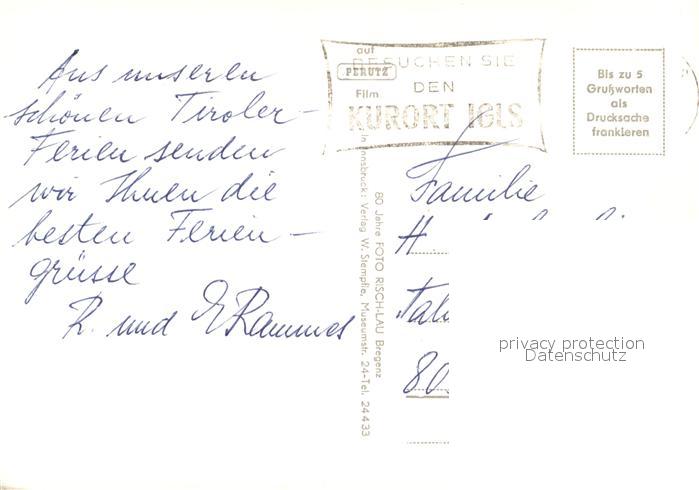 Aus unseren
schönen Tiroler-
Ferien senden
wir Ihnen die
besten Ferien-
grüsse
R. und E Rammes
auf
PERUTZ
Film
BESUCHEN SIE
DEN
KURORT IGLS
Bis zu 5
Grußworten
als
Drucksache
frankieren
Innsbruck: Verlag W. Stempfle, Museumstr. 24-Tel. 24433
80 Jahre FOTO RISCH-LAU Bregenz
Familie
H
80
privacy protection
Datenschutz